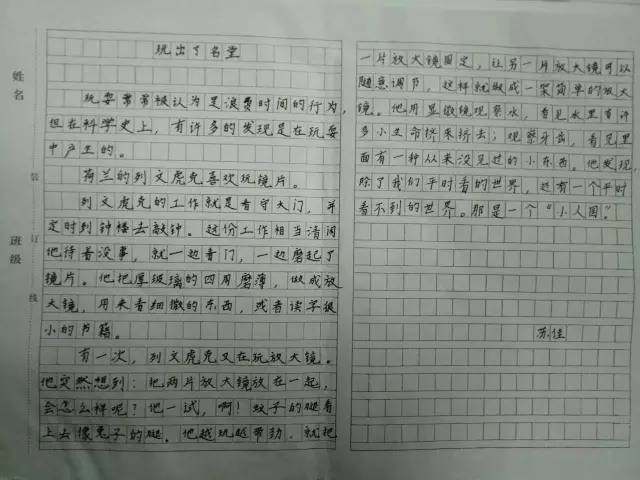 姓名
班级
装
订
线
玩出了名堂
玩耍常常被认为是浪费时间的行为，
但在科学史上，有许多的发现是在玩耍
中产生的。
荷兰的列文虎克喜欢玩镜片。
列文虎克的工作就是看守大门，并
定时到钟楼去敲钟。这份工作相当清闲
他待着没事，就一边看门，一边磨起了
镜片。他把厚玻璃的四周磨薄，做成放
大镜，用来看细微的东西，或者读字极
小的书籍。
有一次，列文虎克又在玩放大镜。
他突然想到：把两片放大镜放在一起，
会怎么样呢？他一试，啊！蚊子的腿看
上去像兔子的腿。他越玩越带劲，就把
一片放大镜固定，让另一片放大镜可以
随意调节，这样就做成一架简单的放大
镜。他用显微镜观察水，看见水里有许
多小生命挤来挤去；观察牙齿，看见里
面有一种从来没见过的小东西。他发现，
除了我们平时看的世界，还有一个平时
看不到的世界。那是一个“小人国”。
苏佳